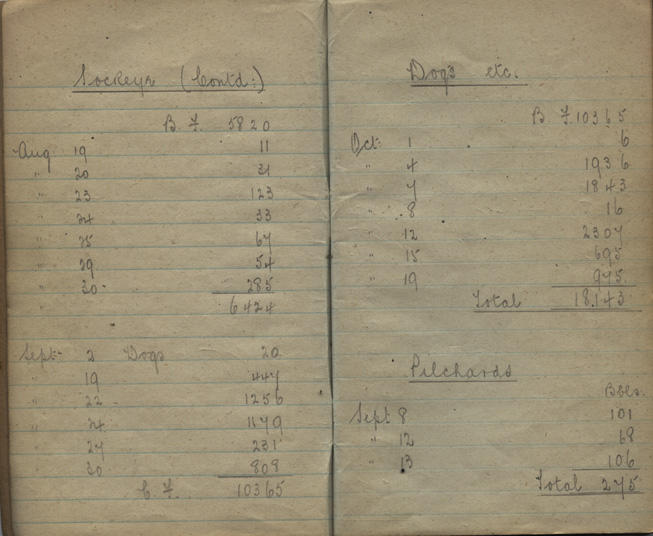 Sockeye (Contd:)
B F. 5820
Aug 19 11
" 20 31
" 23 123
" 24 33
" 25 67
" 29 54
" 30 285
6424
Sept 2 Dogs 20
" 19 447
" 22 1256
" 24 1179
27 231
30 808
C F. 10365
Dogs etc.
B F. 10365
Oct: 1 6
" 4 1936
" 7 1843
" 8 16
" 12 2307
" 15 695
" 19 975
Total 18.143
Pilchards
Bbls.
Sept 8 101
" 12 68
" 13 106
Total 275